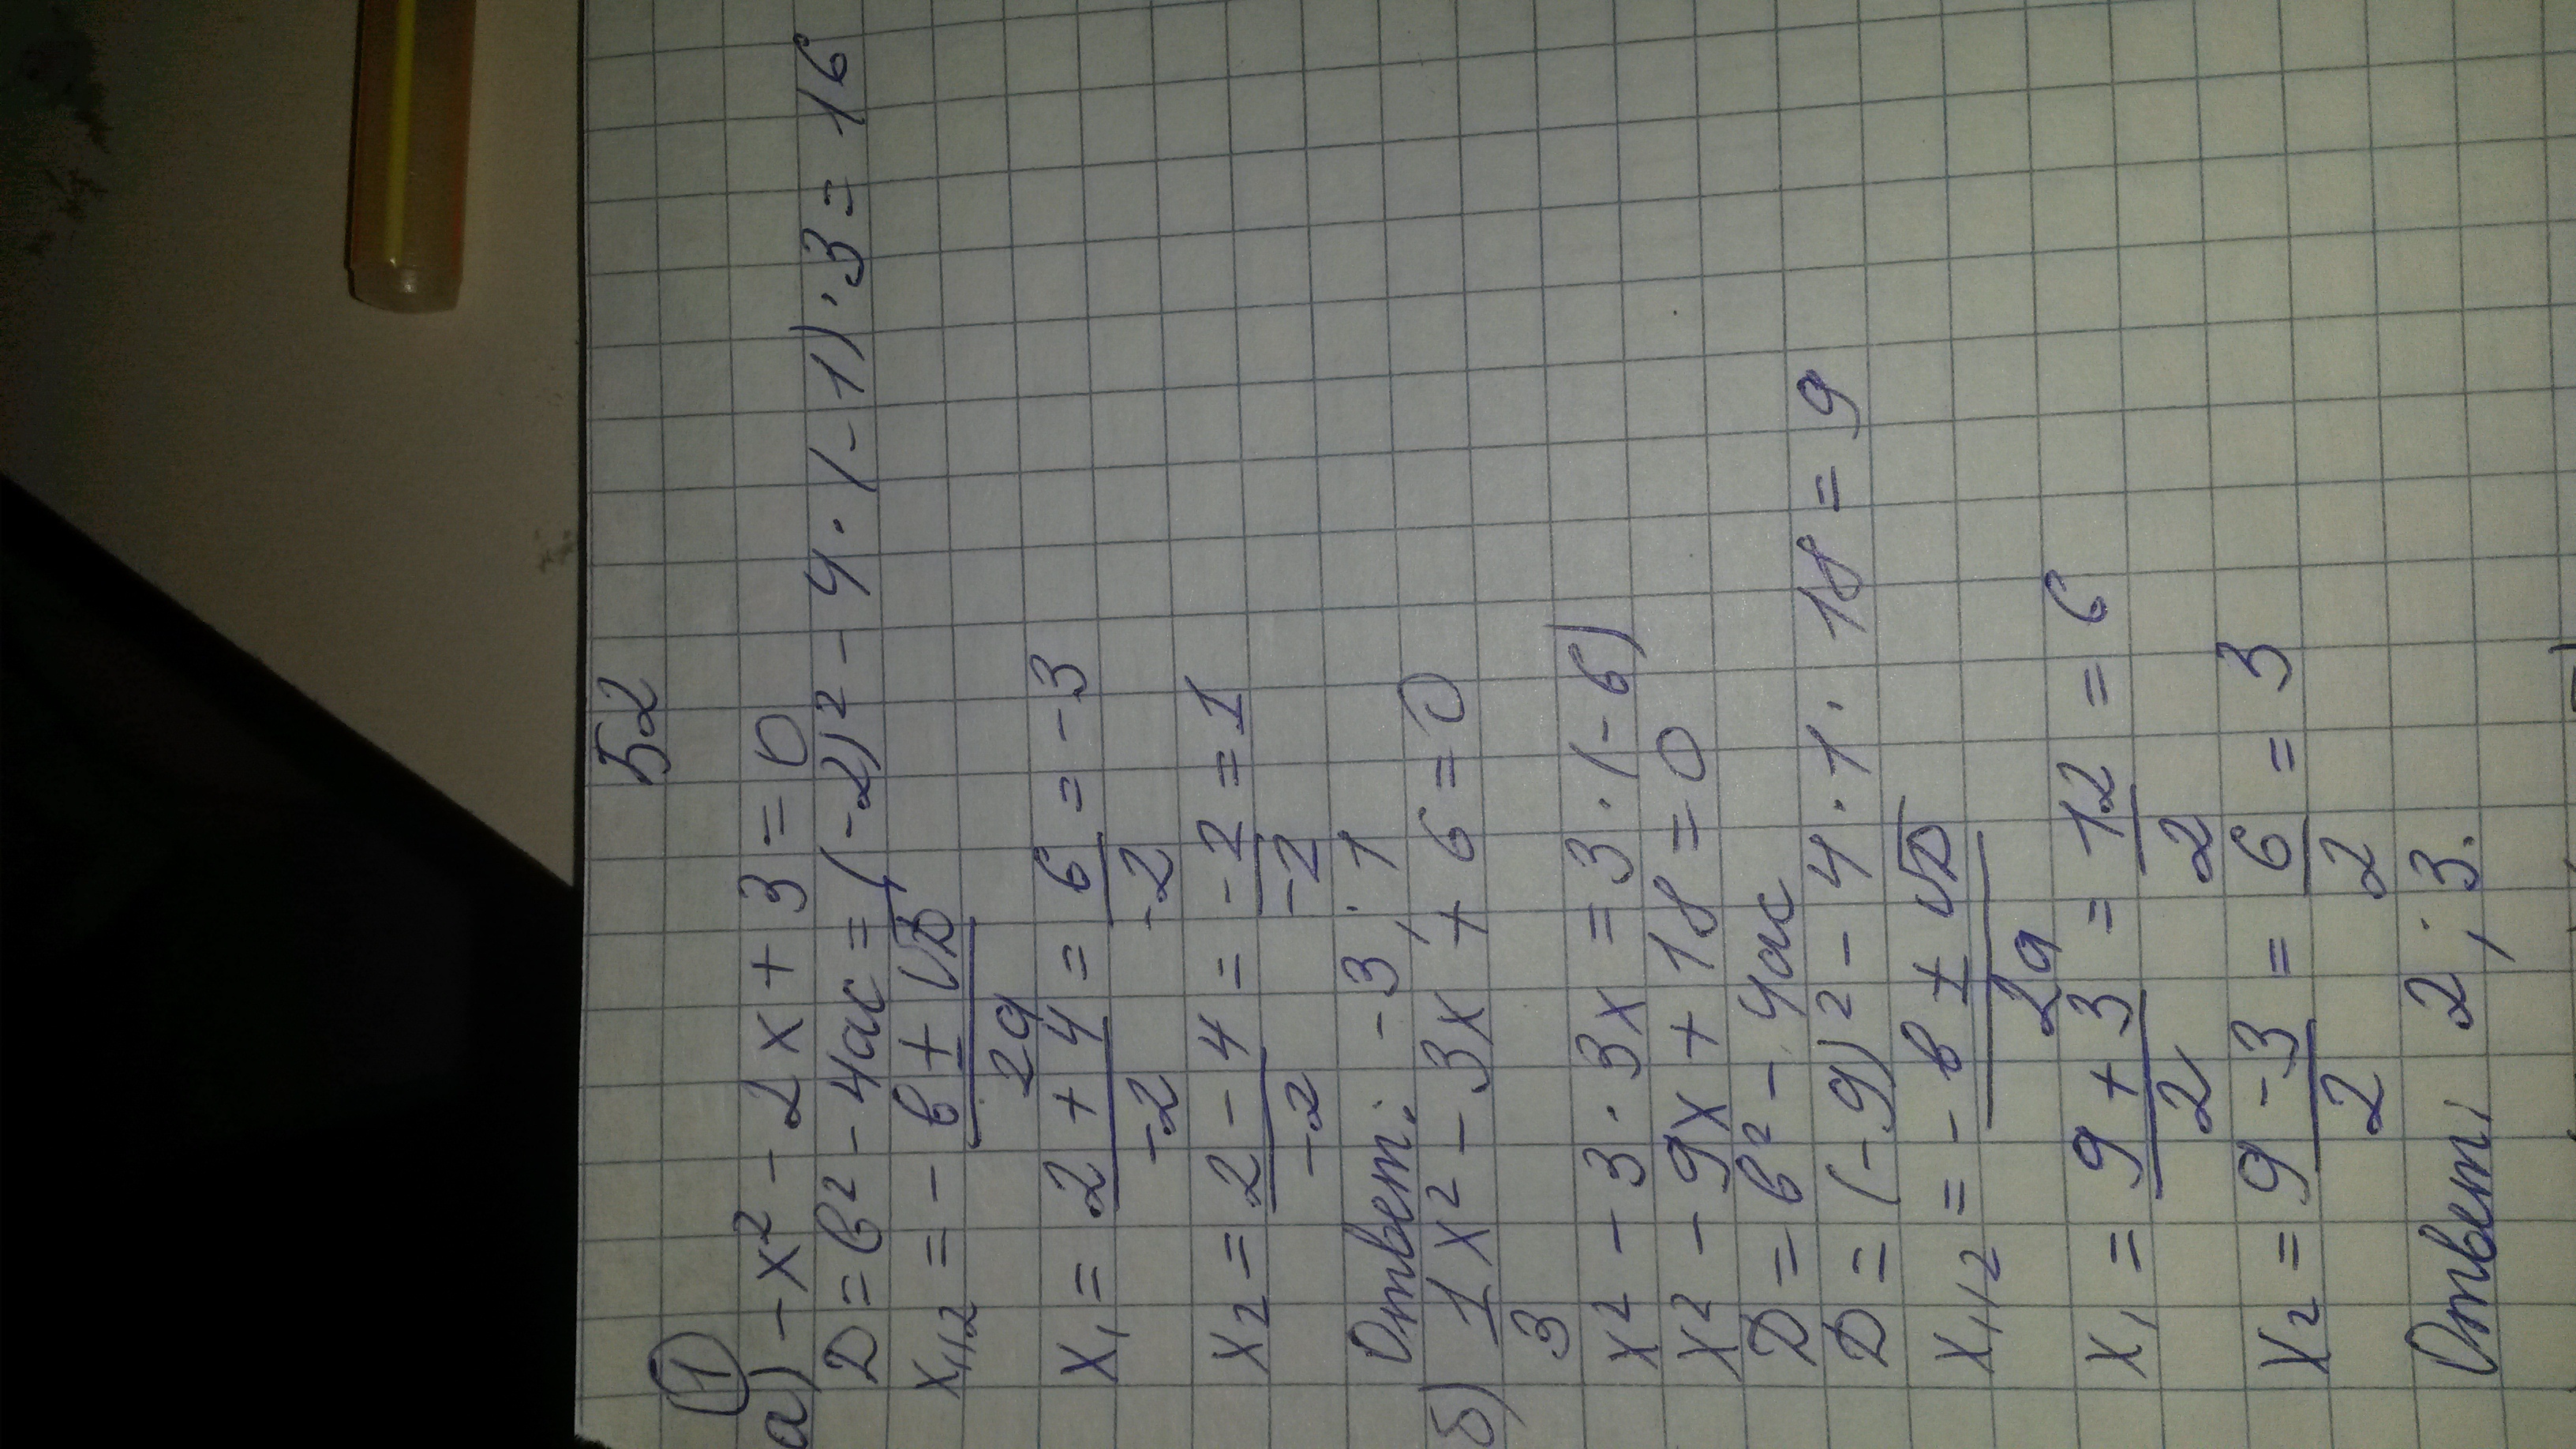 Б2
①
а) -x² - 2x + 3 = 0
D = b² - 4ac = (-2)² - 4 · (-1) · 3 = 16
x₁,₂ = -b ± √D / 2a
x₁ = 2 + 4 / -2 = 6 / -2 = -3
x₂ = 2 - 4 / -2 = -2 / -2 = 1
Ответ: -3; 1
б) 1/3 x² - 3x + 6 = 0
x² - 3 · 3x = 3 · (-6)
x² - 9x + 18 = 0
D = b² - 4ac
D = (-9)² - 4 · 1 · 18 = 9
x₁,₂ = -b ± √D / 2a
x₁ = 9 + 3 / 2 = 12 / 2 = 6
x₂ = 9 - 3 / 2 = 6 / 2 = 3
Ответ: 2; 3.